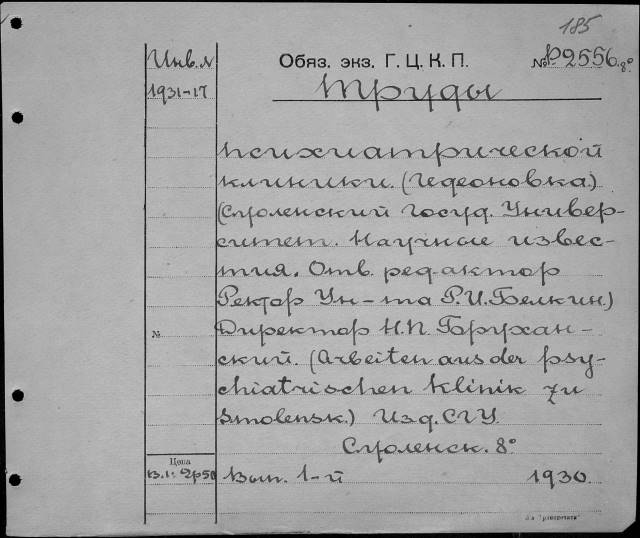 185
Инв. №
Обяз. экз. Г. Ц. К. П.
№ P2556. 8°
1931-17
Труды
психиатрической
клиники. (Гедеоновка.)
(Смоленский Госуд. Универ-
ситет. Научные извес-
тия. Отв. редактор
Ректор Ун-та Р. И. Белкин.)
№
Директор Н. П. Брухан-
ский. (Arbeiten aus der psy-
chiatrischen Klinik zu
Smolensk.) Изд. СГУ.
Смоленск. 8°
Цена
В.1: 2р50
Вып. 1-й
1930.